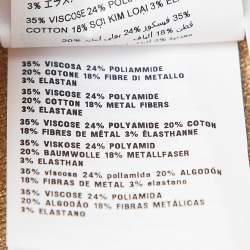 3% エラス
35% VISCOSE 24% POLI
COTTON 18% SỢI KIM LOẠI 3% E
35% فيسكوز 24% بولي
20% قطن 18%
35% VISCOSA 24% POLIAMMIDE
20% COTONE 18% FIBRE DI METALLO
3% ELASTAN
35% VISCOSE 24% POLYAMIDE
20% COTTON 18% METAL FIBERS
3% ELASTANE
35% VISCOSE 24% POLYAMIDE 20% COTON
18% FIBRES DE MÉTAL 3% ÉLASTHANNE
35% VISKOSE 24% POLYAMID
20% BAUMWOLLE 18% METALLFASER
3% ELASTHAN
35% viscosa 24% poliamida 20% ALGODÓN
18% FIBRAS DE METAL 3% elastano
35% VISCOSE 24% POLIAMIDA
20% ALGODÃO 18% FIBRAS METÁLICAS
3% ELASTANO